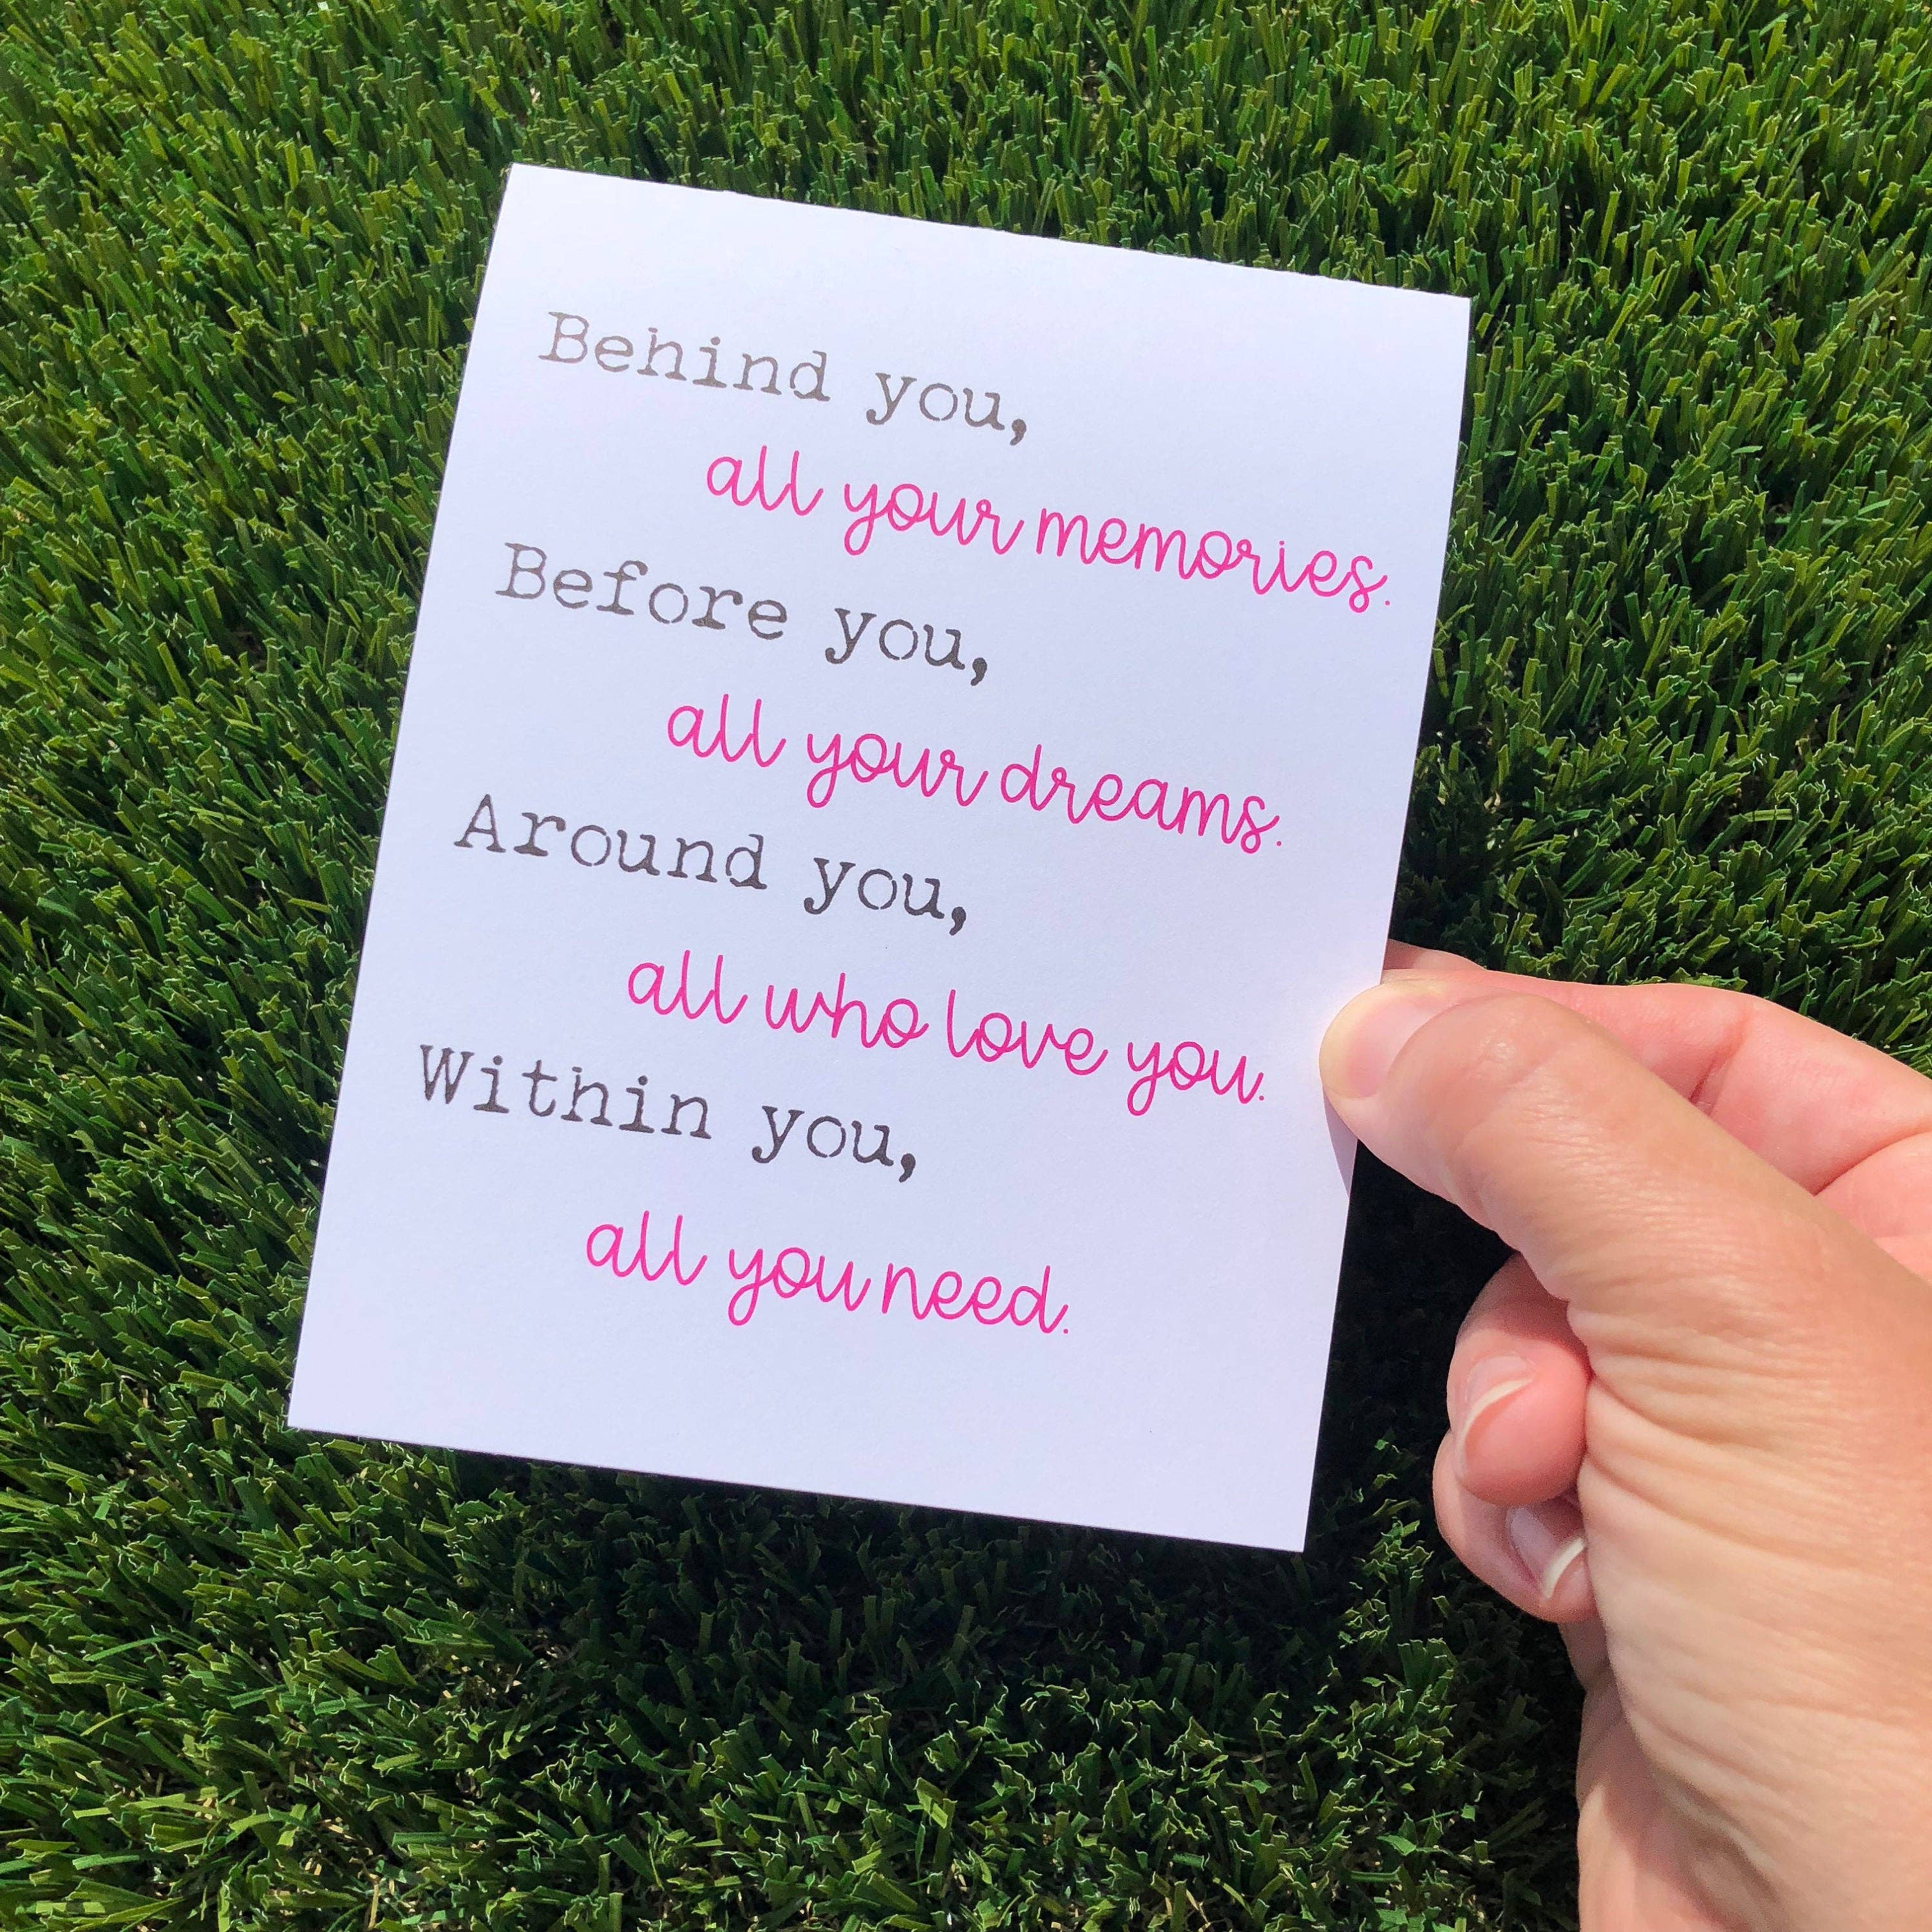 Behind you,
all your memories.
Before you,
all your dreams.
Around you,
all who love you.
Within you,
all you need.